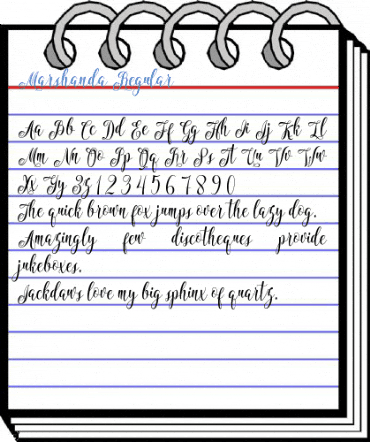 Marshanda Regular
Aa Bb Cc Dd Ee Ff Gg Hh Ii Jj Kk Ll
Mm Nn Oo Pp Qq Rr Ss Tt Uu Vv Ww
Xx Yy Zz 1 2 3 4 5 6 7 8 9 0
The quick brown fox jumps over the lazy dog.
Amazingly few discotheques provide
jukeboxes.
Jackdaws love my big sphinx of quartz.